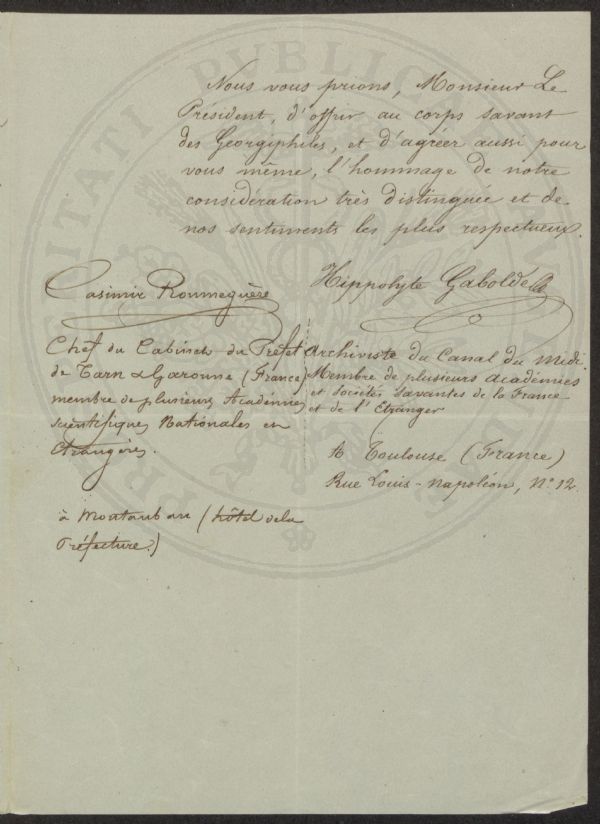 Nous vous prions, Monsieur Le
Président, d'offrir au corps savant
des Georgiphiles, et d'agréer aussi pour
vous même, l'hommage de notre
considération très distinguée et de
nos sentiments les plus respectueux.
Casimir Roumeguère
Chef du Cabinet du Préfet
de Tarn & Garonne (France)
membre de plusieurs Académies
scientifiques Nationales en
étrangères.
à Montauban (hôtel de la
Préfecture.)
Hippolyte Gabolde
Archiviste du Canal du Midi
Membre de plusieurs académies
et Sociétés savantes de la France
et de l'Etranger
A Toulouse (France)
Rue Louis-napoléon, N° 12.
PUBLICAE